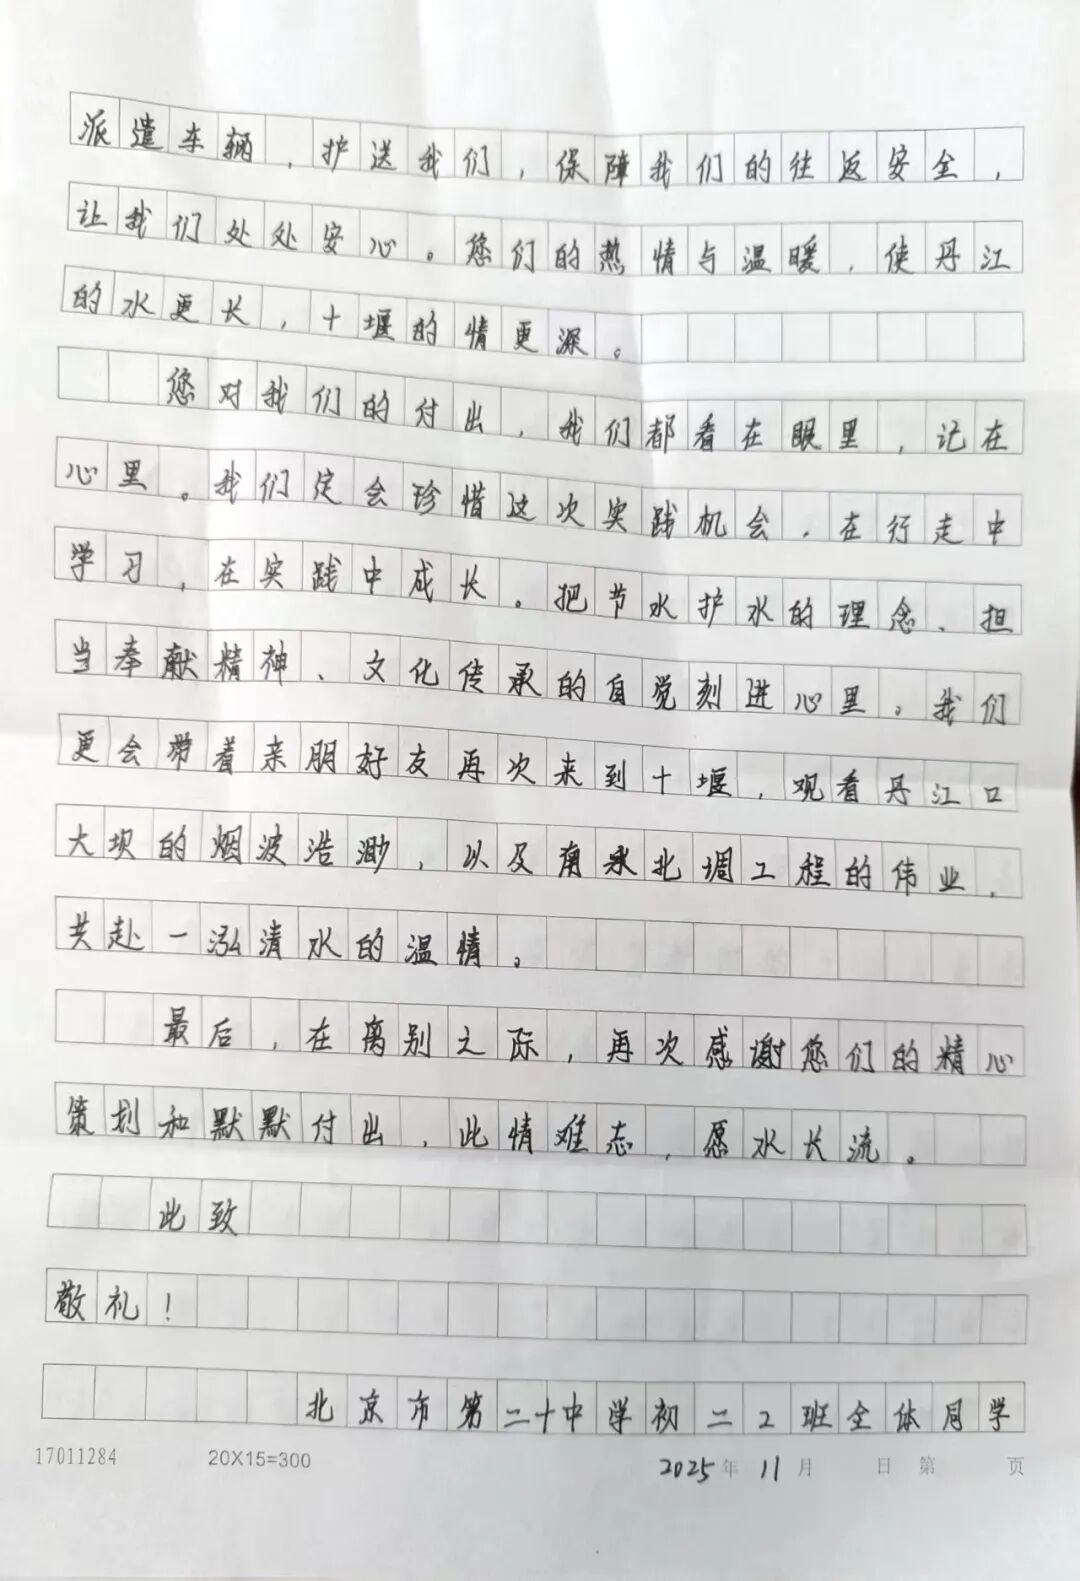 派遣车辆，护送我们，保障我们的往返安全，
让我们处处安心。您们的热情与温暖，使丹江
的水更长，十堰的情更深。
您对我们的付出，我们都看在眼里，记在
心里。我们定会珍惜这次实践机会，在行走中
学习，在实践中成长。把节水护水的理念、担
当奉献精神、文化传承的自觉刻进心里。我们
更会带着亲朋好友再次来到十堰，观看丹江口
大坝的烟波浩渺，以及南水北调工程的伟业，
共赴一泓清水的温情。
最后，在离别之际，再次感谢您们的精心
策划和默默付出，此情难忘，愿水长流。
此致
敬礼！
北京市第二十中学初二2班全体同学
17011284 20X15=300 2025年11月 日 第 页